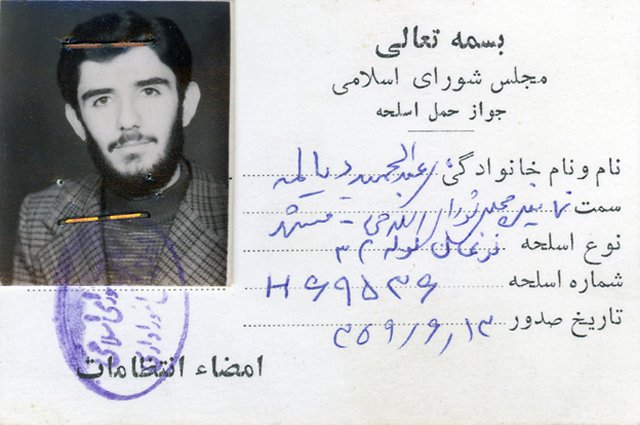 بسمه تعالی
مجلس شورای اسلامی
جواز حمل اسلحه
نام و نام خانوادگی عبدالحمید دیالمه
سمت نماینده مجلس شورای اسلامی - مشهد
نوع اسلحه لوله ۳
شماره اسلحه H ۶۹۵۳۶
تاریخ صدور ۳۵۹/۶/۱۳
امضاء انتظامات